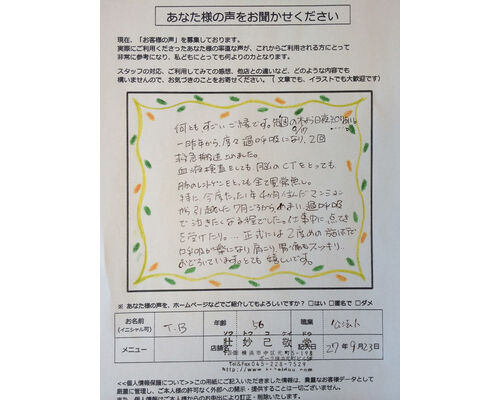 あなた様の声をお聞かせください
現在、「お客様の声」を募集しております。
実際にご利用くださったあなた様の率直な声が、これからご利用される方にとって
非常に参考になり、私どもにとっても何よりの力となります。
スタッフの対応、ご利用してみての感想、他店との違いなど、どのような内容でも
構いませんので、お気づきのことをお寄せください。（文章でも、イラストでも大歓迎です）
何ともすごいご縁です。
一昨年から、度々過呼吸になり、2回
救急搬送されました。
血液検査をしても、脳のCTをとっても、
肺のレントゲンをとっても全て異常無し。
特に、今度たった1年4か月住んだマンション
から引越した7月ごろから、めまい、過呼吸
で泣きたくなる程でした。仕事中に、点てき
を受けたり。…正式には2度めの施術で
呼吸が楽になり肩こり、胃痛もスッキリ、
おどろいています。とても嬉しいです。
※ あなた様の声を、ホームページなどでご紹介してもよろしいですか？ □はい □匿名で □ダメ
お名前 (イニシャル可) T.B 年齢 56 職業
メニュー 店舗名 壮妙己敬堂 記入日 27年9月23日
横浜市中区元町5-198
Tel&Fax045-228-7529
<<個人情報保護について>>この用紙にご記入いただきました情報は、貴重なお客様データとして
厳重に管理し、ご本人様の許可なく外部への開示・提供することは一切ございません。
また、個人情報はご本人様からのお申出により訂正・削除いたします。